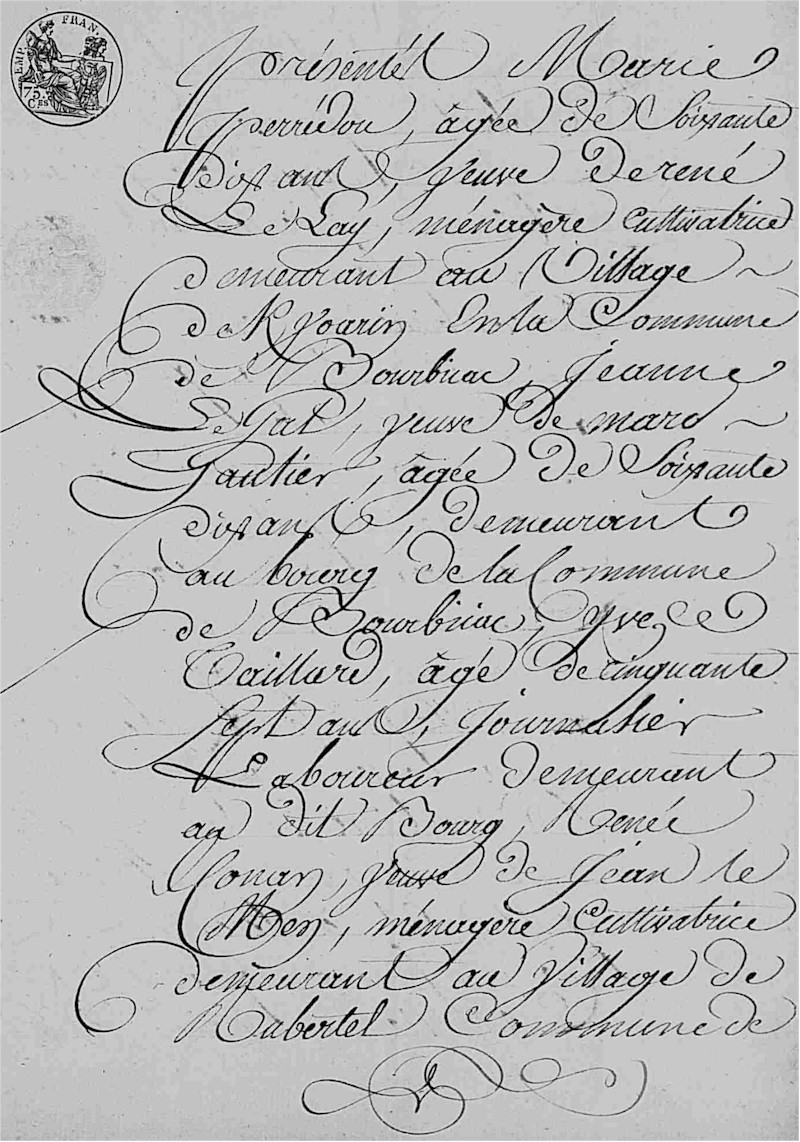 EMP. FRAN.
75 Ces
présenté Marie
perrédou, âgée de Soixante
dix ans, veuve de rené
Le Lay, ménagère Cultivatrice
demeurant au Village ~
de Kyoarin En la Commune
de Bourbriac, Jeanne
Le Gat, veuve De marc ~
Gautier, âgée De Soixante
dix ans, demeurant
au bourg de la Commune
de Bourbriac, Yves
Taillard, âgé de cinquante
Sept ans, journalier
Laboureur demeurant
au dit Bourg, Renée
Conan, veuve de Jean le
Men, ménagère Cultivatrice
demeurant au Village de
Rabertel Commune de